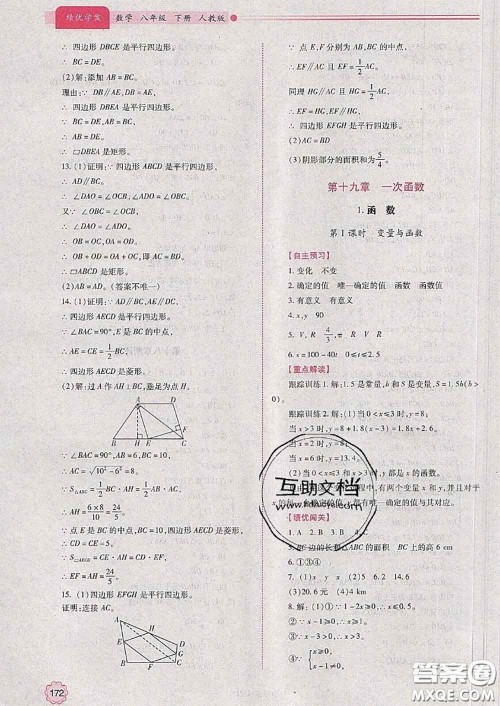 绩优学案 数学 八年级 下册 人教版
∴ 四边形 DBCE 是平行四边形.
∴ BC=DE.
(2)解:添加 AB=BC.
理由:∵ DB∥AE,DB=AE,
∴ 四边形 DBEA 是平行四边形.
∵ BC=DE,AB=BC,
∴ AB=DE.
∴ ▱DBEA 是矩形.
13. (1)证明:∵ 四边形 ABCD 是平行四边形,
∴ AD∥BC.
∴ ∠DAO=∠OCB,∠ADO=∠OBC.
又∵ ∠OBC=∠OCB,
∴ ∠DAO=∠ADO.
∴ OB=OC,AO=OD.
∴ OB+OD=OA+OC,即 AC=BD.
∴ ▱ABCD 是矩形.
(2)AB=AD. (答案不唯一)
14. (1)证明:∵ AE∥CD,CE∥AB,
∴ 四边形 AECD 是平行四边形.
∵ ∠BAC=90°,E 是 BC 的中点,
∴ AE=CE=1/2 BC.
∴ 四边形 AECD 是菱形.
(2)解:过 A 作 AH⊥BC,垂足为点 H.
A D
B H E C F
∵ ∠BAC=90°,AB=6,BC=10,
∴ AC=√(10²-6²)=8.
∵ S△ABC=1/2 BC·AH=1/2 AB·AC,
∴ AH=(6×8)/10=24/5.
∵ 点 E 是 BC 的中点,四边形 AECD 是菱形,
∴ CD=CE.
∵ S▱AECD=CE·AH=CD·EF,
∴ EF=AH=24/5.
15. (1)四边形 EFGH 是平行四边形.
证明:连接 AC.
172
∵ 点 E,F 分别为 AB,BC 的中点,
∴ EF∥AC 且 EF=1/2 AC.
同理 HG∥AC 且 HG=1/2 AC.
∴ EF=HG,EF∥HG.
∴ 四边形 EFGH 是平行四边形.
(3)阴影部分的面积和为5/4.
第十九章 一次函数
1. 函 数
第 1 课时 变量与函数
【自主预习】
1. 变化 不变
2. 确定的值 唯一确定的值 函数 函数值
3. 有意义 有意义
4. x,y 90
5. V,R 4/3 π R V R
6. s=100-40t 0≤t≤5/2
【重点解读】
跟踪训练 1. 解:1.5 是常量,h 和 S 是变量,S=1.5h(h>0).
跟踪训练 2. 解:(1)当 0<x≤3 时,y=8;
当 x>3 时,y=8+1.8(x-3)=1.8x+2.6.
当 x=2 时,y=8;
当 x=6 时,y=13.4.
【绩优闯关】
6. ①③④
7. (1)x y x (2)5 6.2 14.6
(3)20.6 元 (4)4
8. 解:①∵ 1-2x≥0,∴ x≤1/2.
②∵ x-1≥0,∴ x≥1.
③∵ x-3>0,∴ x>3.
互助文档
答案圈
MXQE.COM